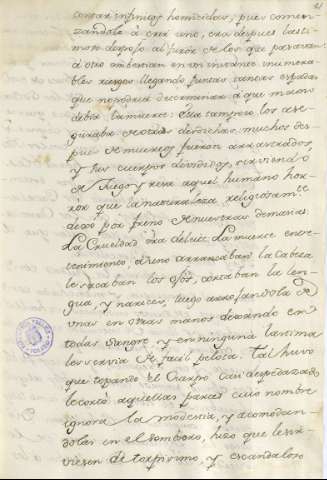 contar infinitos homicidas; pues comen-
zandole à erir uno, era despues lasti-
moso despojo al furor de los que pasavan
à otro embestian en un instante inumera-
bles riesgos llegando juntas tantas espadas
que no podria determinar à que mano
debiò la muerte. Esta tampoco los ase-
guraba de otras desdichas, muchos des-
pues de muertos fueron arrastrados,
y sus cuerpos divididos, sirviendo
de juego y risa aquel humano hor-
ror que la naturaleza religiosamte
dejò por freno de nuestras demasias.
La Crueldad era deleite La muerte entre-
tenimiento; à uno arrancaban la Cabeza
le sacaban los ojos, cortaban la len-
gua, y narices, luego arrojandola de
unas en otras manos dexando en
todas sangre, y en ninguna lastima
les servia de facil pelota: Tal huvo
que topando el Cuerpo casi despedazado
le cortò aquellas partes cuio nombre
ignora la modestia, y acomodan-
dolas en el sombrero, hizo que le sir-
viesen de torpisimo, y escandaloso